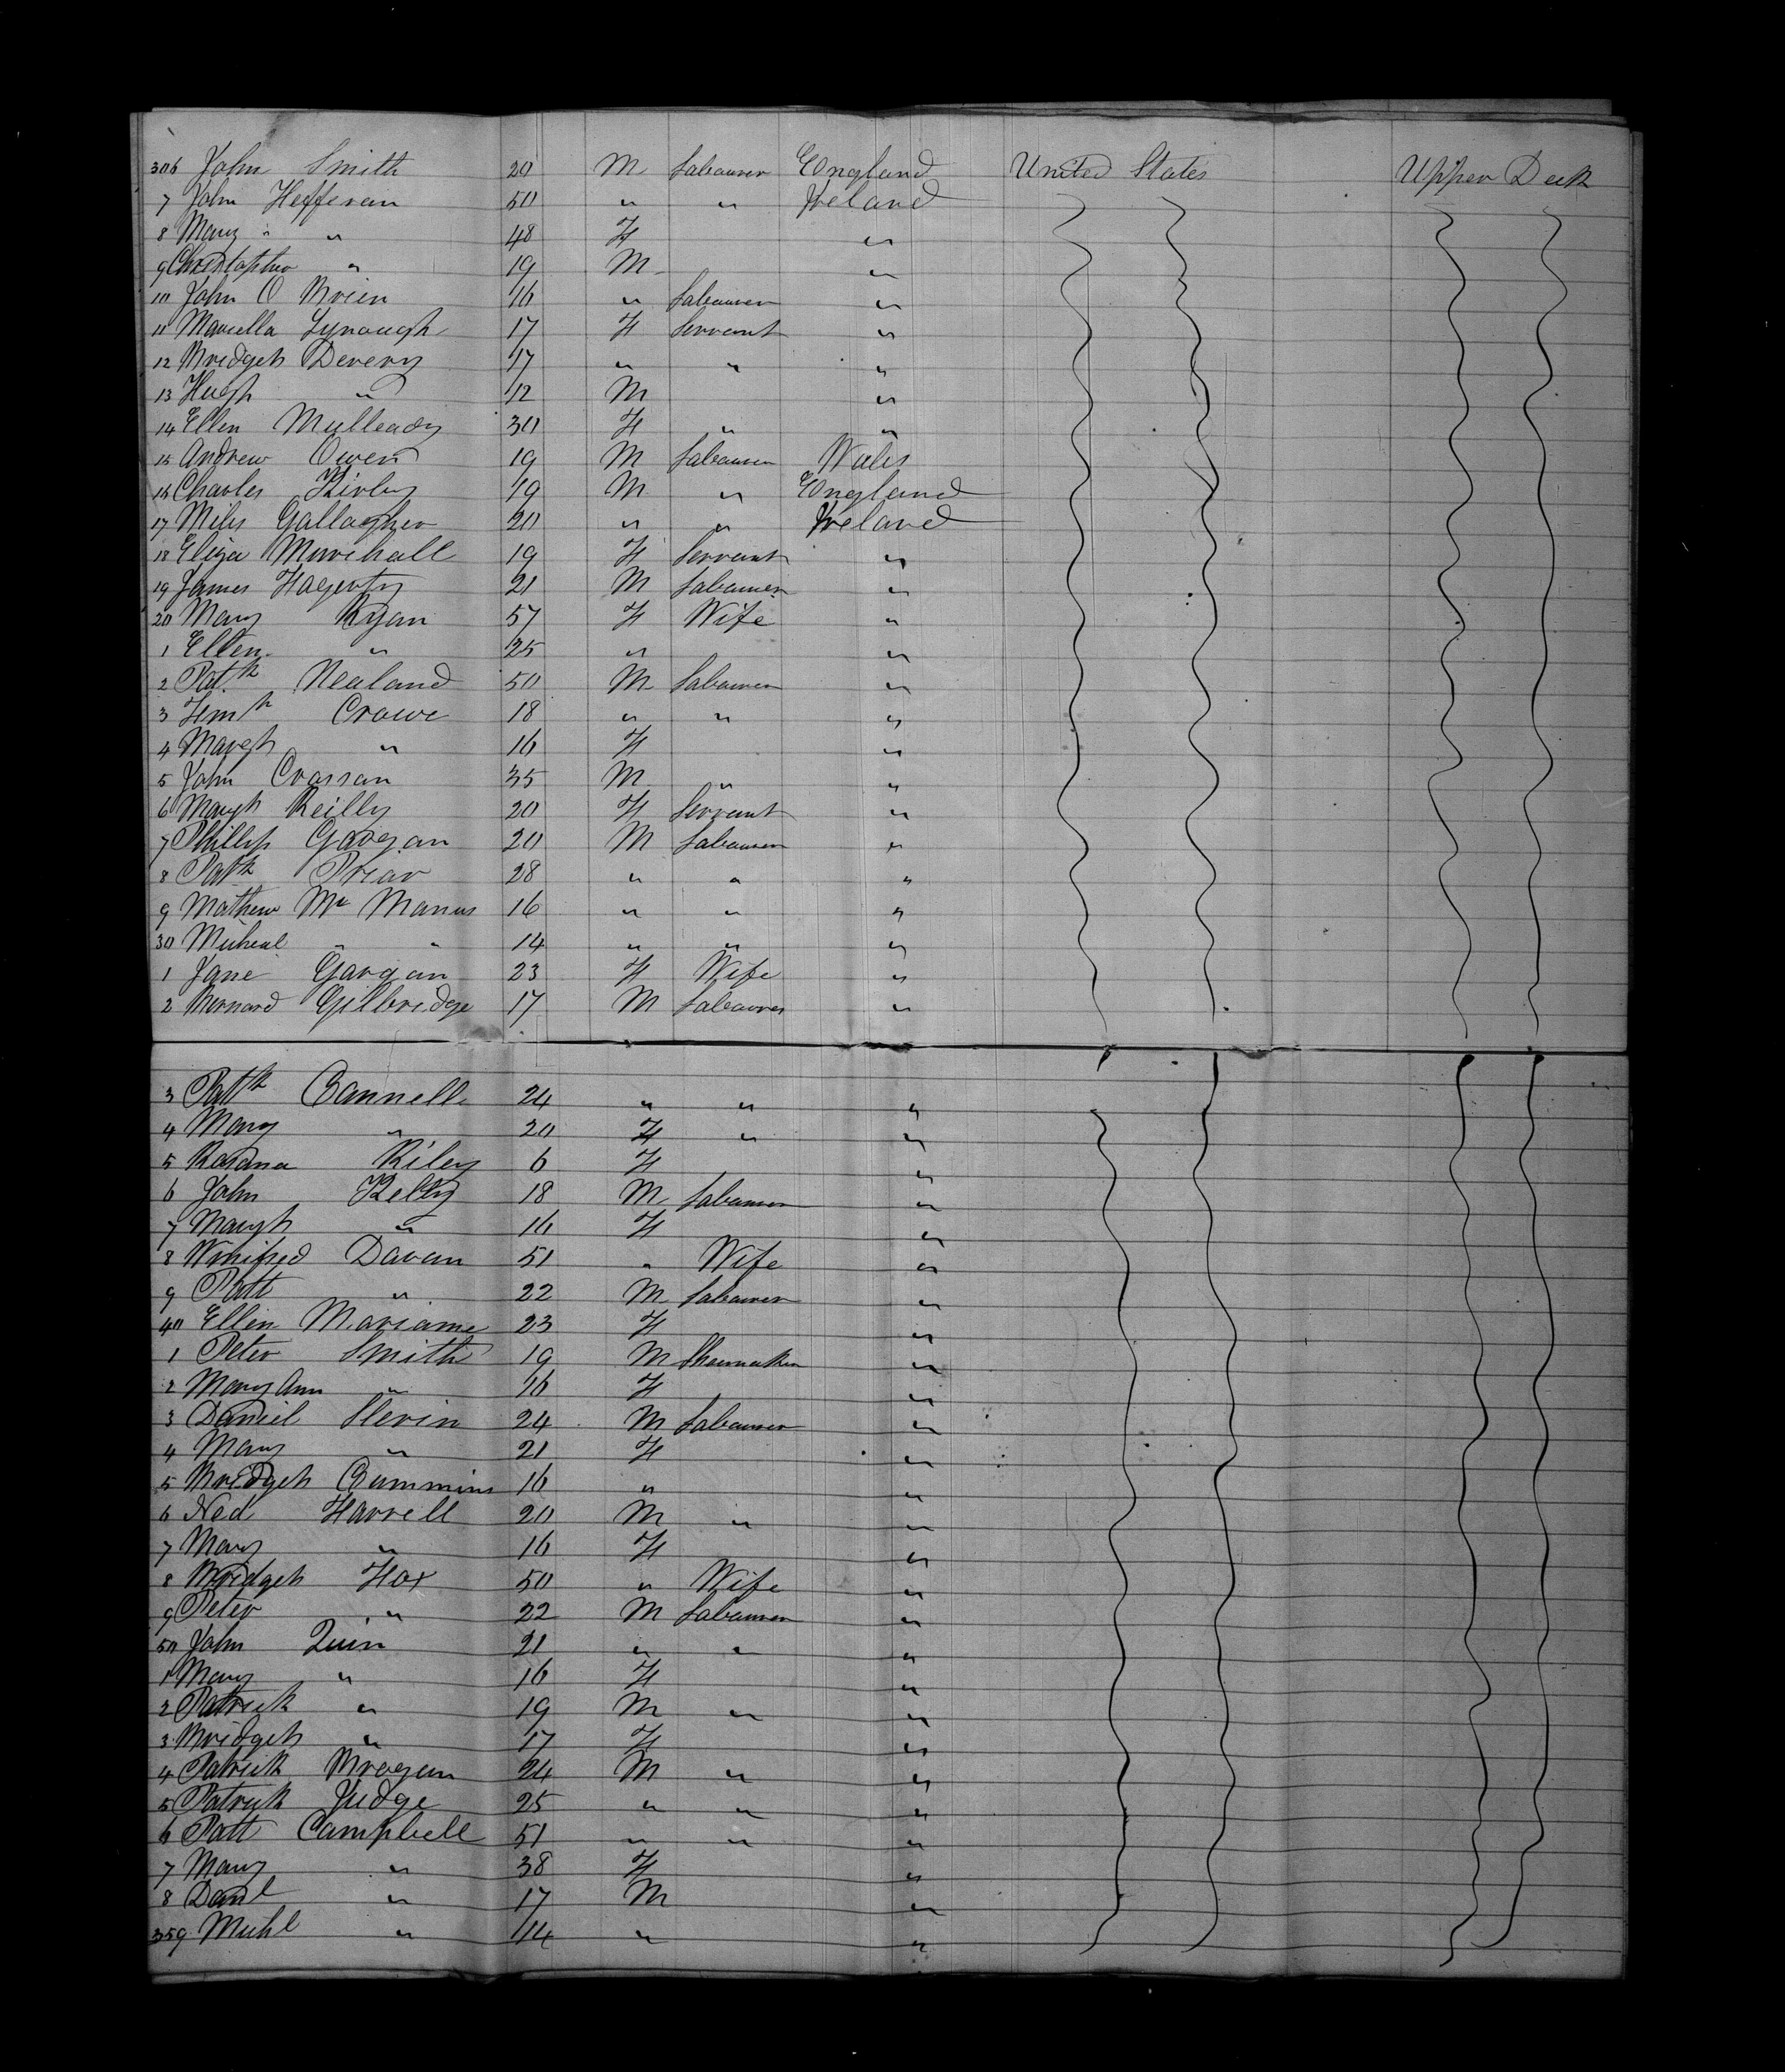 306 John Smith 20 M Labourer England United States Upper Deck
7 John Hefferan 50 " " Ireland
8 Mary " " 48 F "
9 Christopher " 19 M "
10 John O Brien 16 " Labourer "
11 Marcella Lynough 17 F Servant "
12 Bridget Devery 17 " " "
13 Hugh " 12 M "
14 Ellen Mulleady 30 F " "
15 Andrew Owen 19 M Labourer Wales
16 Charles Kirby 19 M " England
17 Miles Gallagher 20 " " Ireland
18 Eliza Marshall 19 F Servant "
19 James Hagerty 21 M Labourer "
20 Mary Ryan 57 F Wife "
1 Ellen " 25 " "
2 Patk Nealand 50 M Labourer "
3 Crowe 18 " " "
4 Margt " 16 F "
5 John Crassan 35 M " "
6 Margt Reilly 20 F Servant "
7 Phillip Gargan 20 M Labourer "
8 Patk Priar 28 " " "
9 Mathew Mc Manus 16 " " "
30 Micheal " " 14 " " "
1 Jane Gargan 23 F Wife "
2 Bernard Gilbridge 17 M Labourer "
3 Pattk Cannell 24 " " "
4 Mary " 20 F " "
5 Rosana Riley 6 F "
6 John Kelly 18 M Labourer "
7 Margt " 16 F "
8 Winifred Davan 51 " Wife "
9 Patt " 22 M Labourer "
40 Ellen Mariame 23 F "
1 Peter Smith 19 M Shoemaker "
2 Mary Ann " 16 F "
3 Daniel Slevin 24 M Labourer "
4 Mary " 21 F "
5 Bridget Cummins 16 " "
6 Ned Harrell 20 M " "
7 Mary " 16 F "
8 Bridget Fox 50 " Wife "
9 Peter " 22 M Labourer "
50 John Quin 21 " " "
1 Mary " 16 F "
2 Patrick " 19 M " "
3 Bridget " 17 F "
4 Patrick Brogan 24 M " "
5 Patrick Judge 25 " " "
6 Patt Campbell 51 " " "
7 Mary " 38 F "
8 Danl " 17 M "
359 Michl " 14 " "